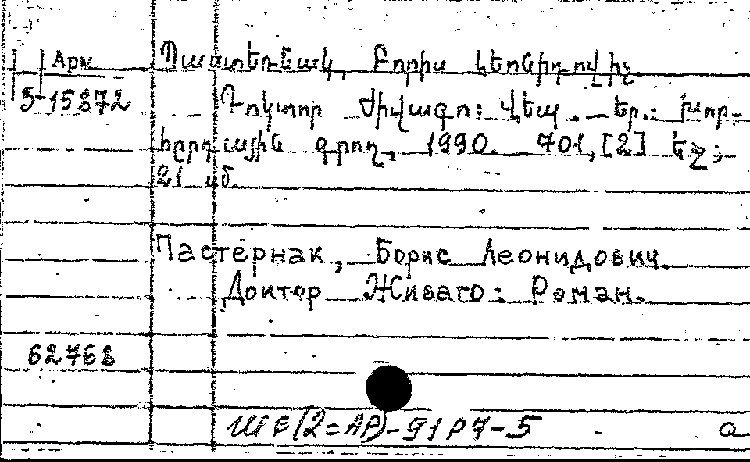 Арм Պաստեռնակ, Բորիս Լեոնիդովիչ
5-15872 Դոկտոր Ժիվագո: Վեպ. _ Եր.: Խոր-
հըրդային գրող, 1990. _ 701, [2] եջ;
21 սմ.
Пастернак, Борис Леонидович.
Доктор Живаго: Роман.
62768
-91Р7-5 a